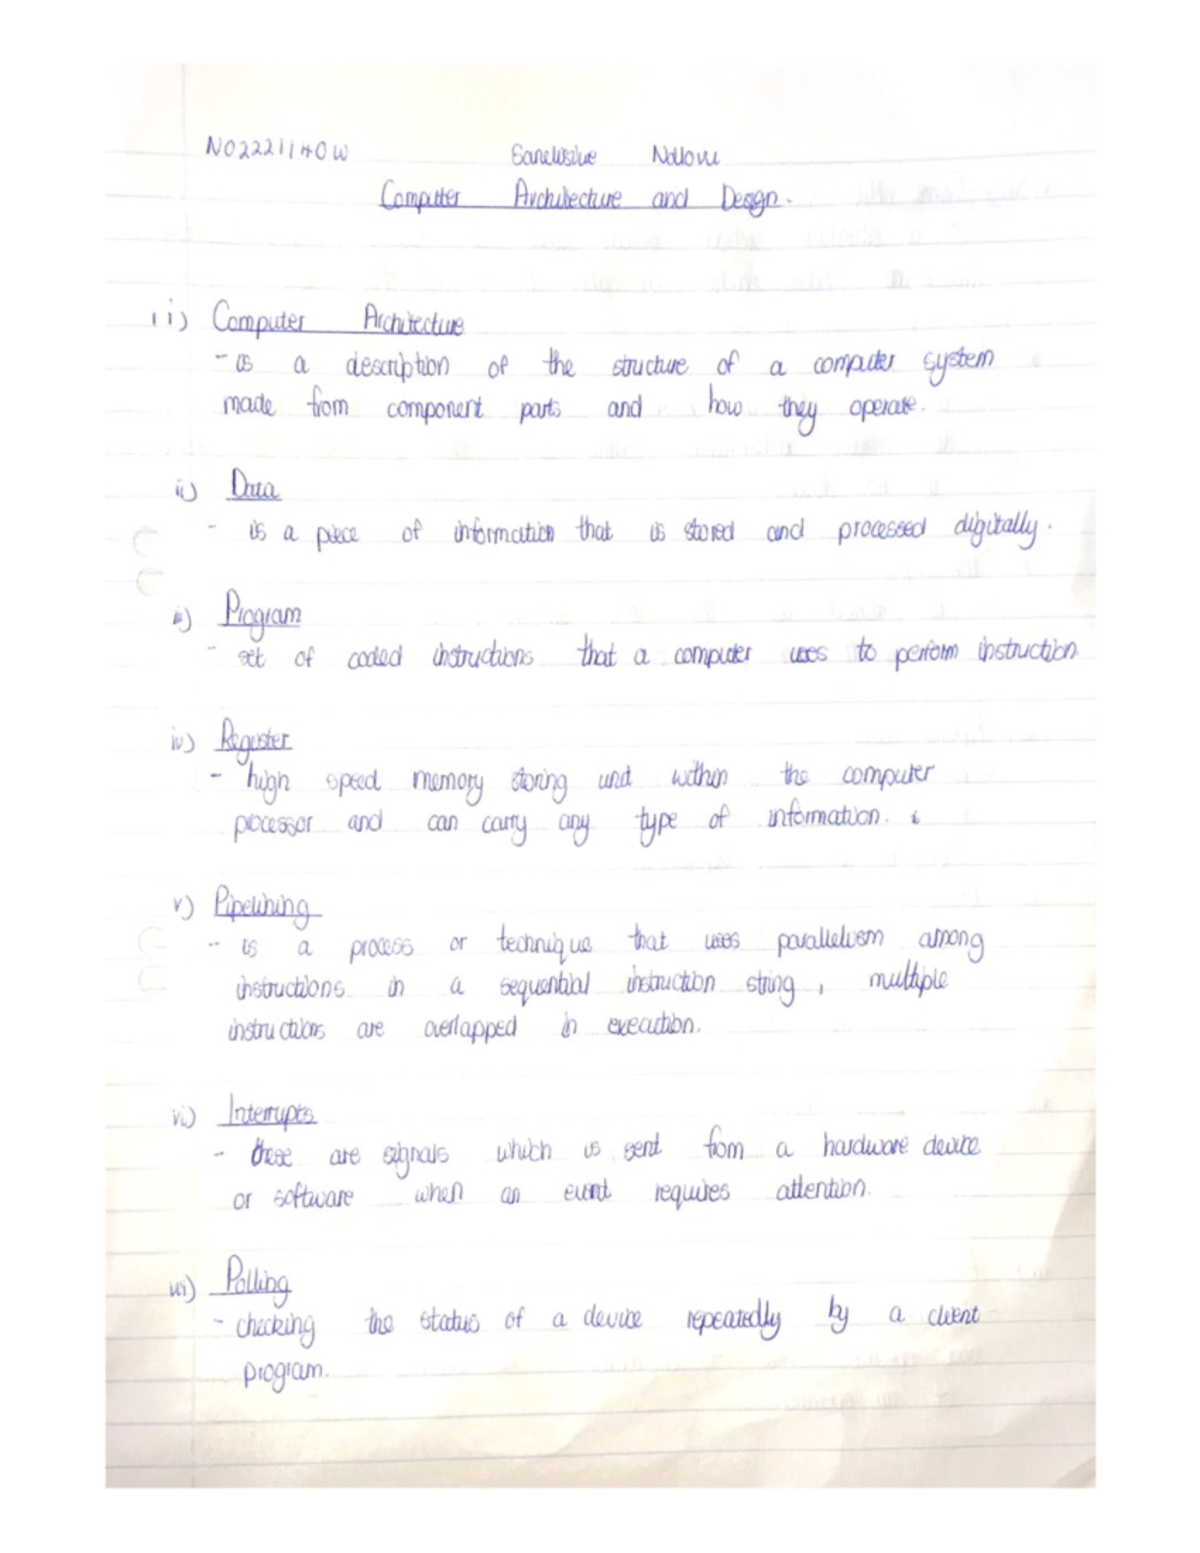 N02221140W Sanelisiwe Ndlovu
Computer Architecture and Design.
1 i) Computer Architecture
- is a description of the structure of a computer system
made from component parts and how they operate.
ii) Data
- is a piece of information that is stored and processed digitally.
iii) Program
- set of coded instructions that a computer uses to perform instruction
iv) Register
- high speed memory storing unit within the computer
processor and can carry any type of information.
v) Pipelining
- is a process or technique that uses parallelism among
instructions in a sequential instruction string, multiple
instructions are overlapped in execution.
vi) Interrupts
- these are signals which is sent from a hardware device
or software when an event requires attention.
vii) Polling
- checking the status of a device repeatedly by a client
program.